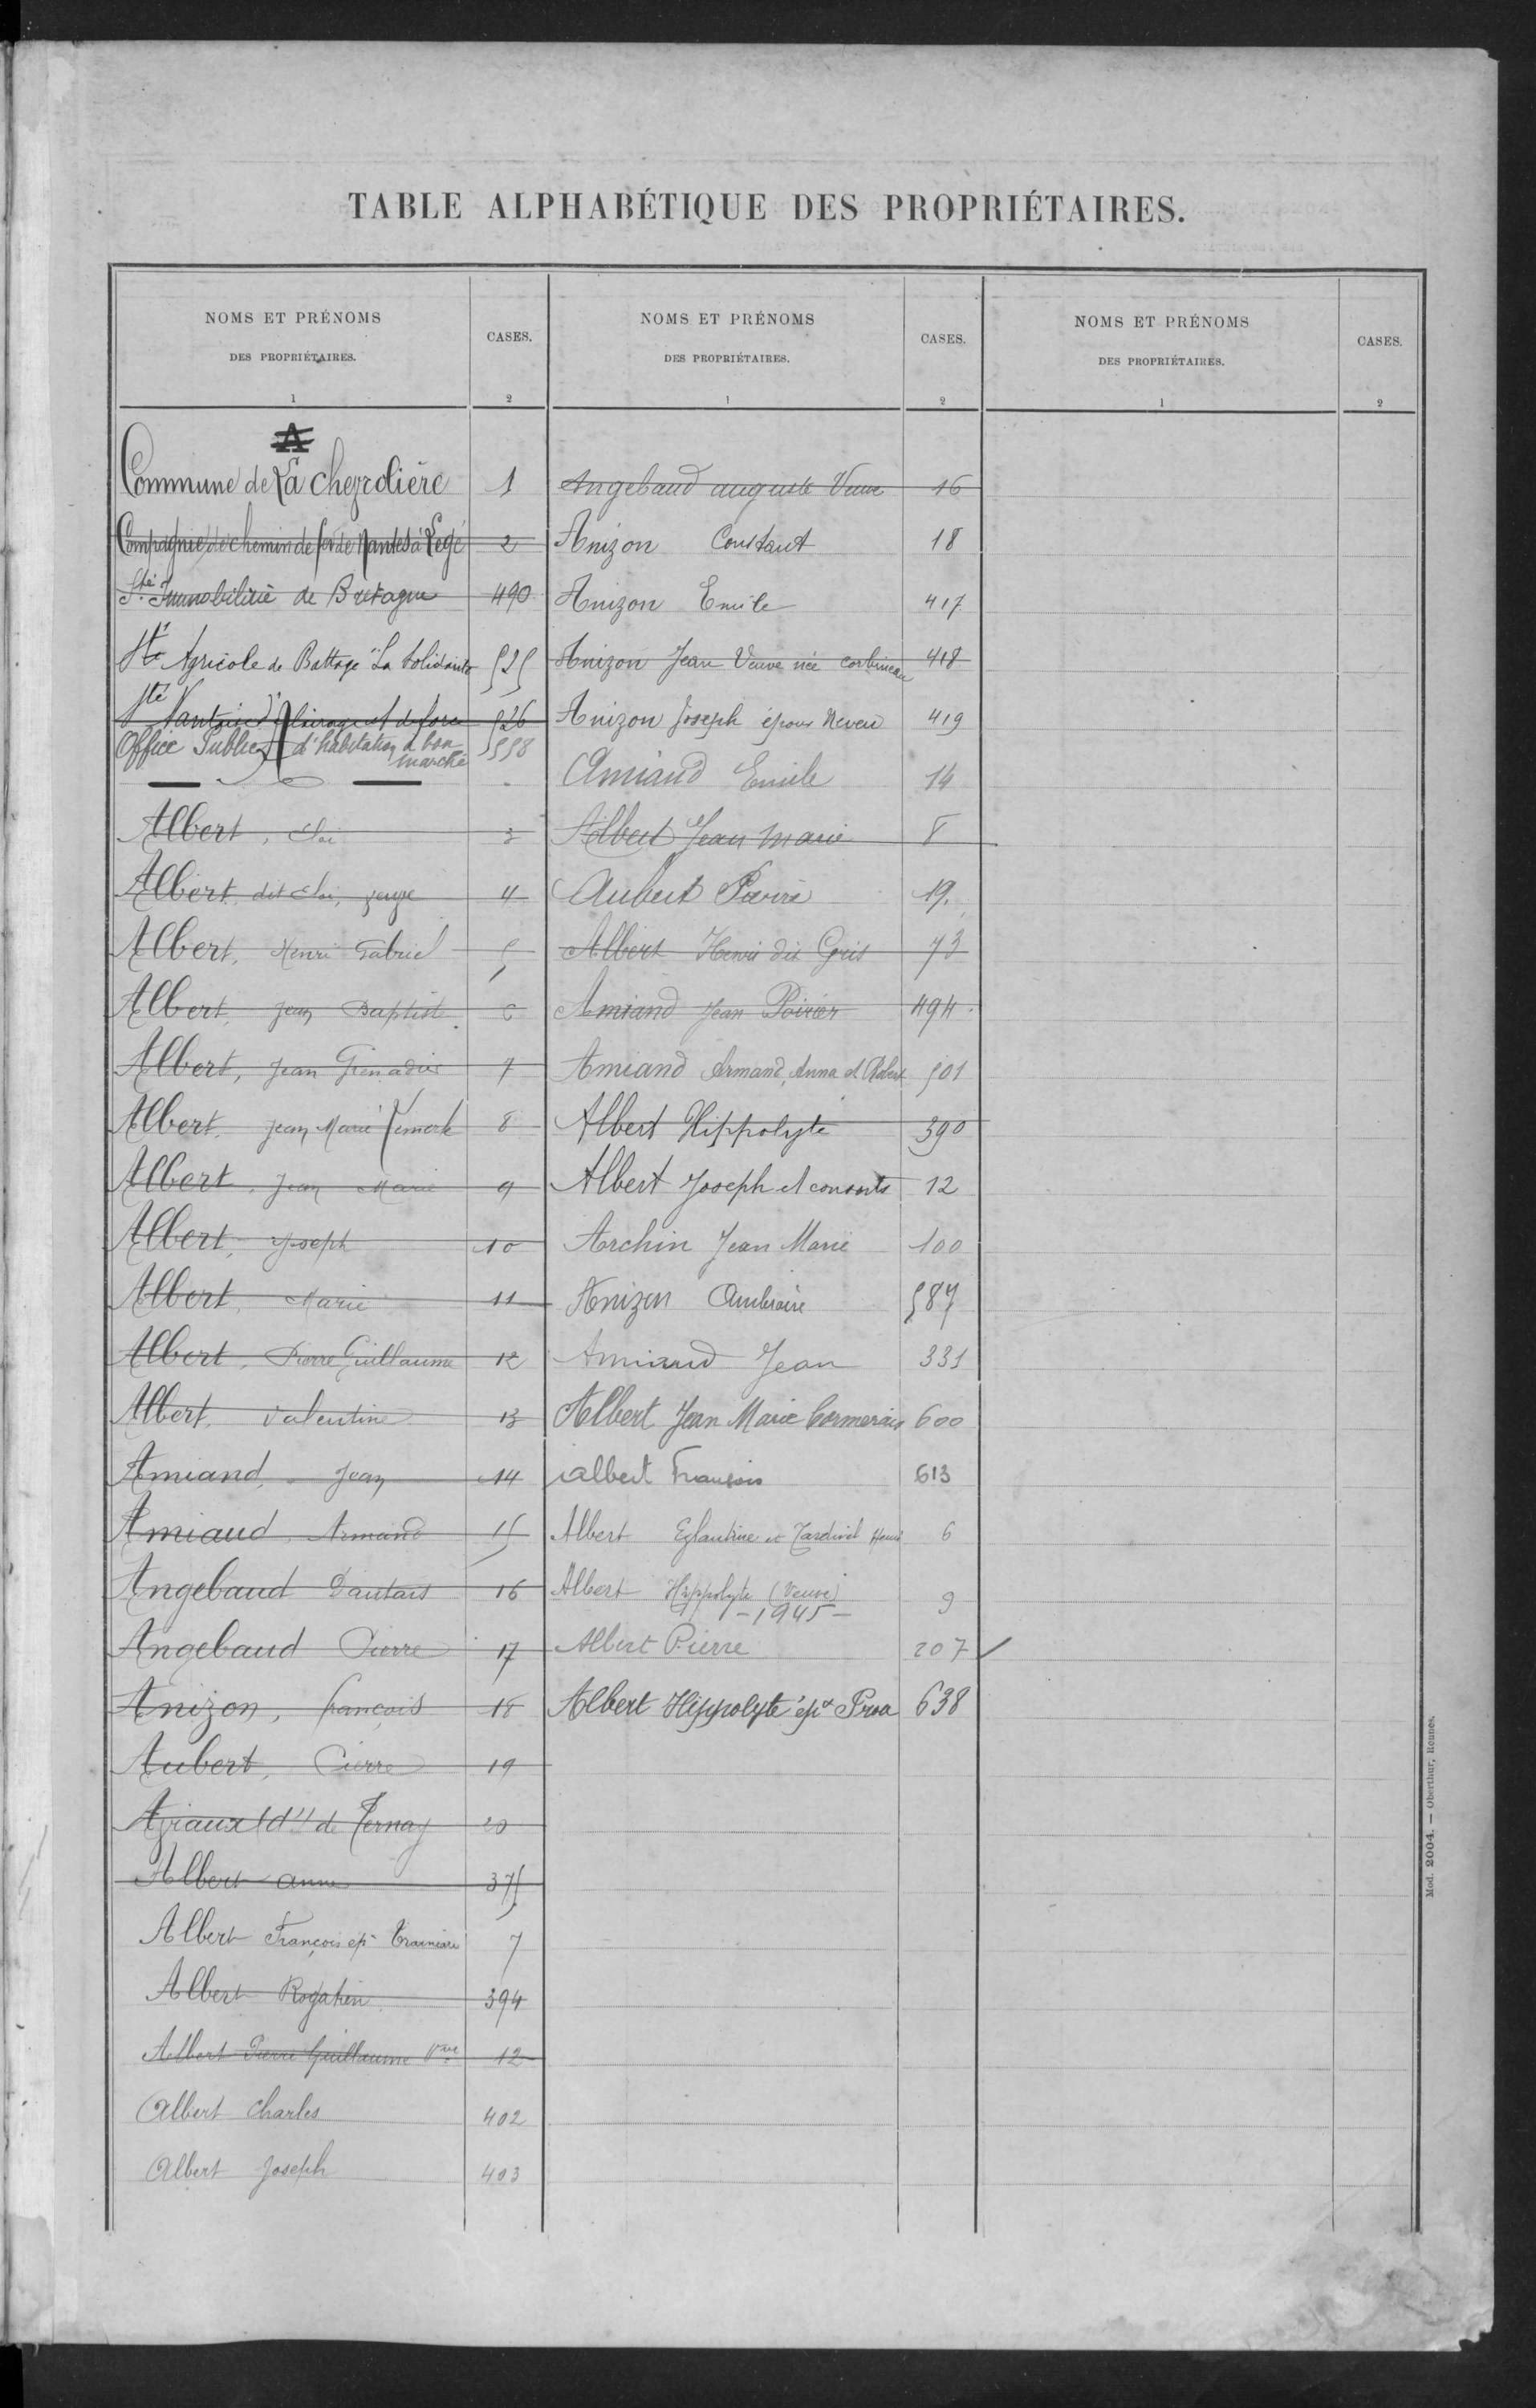 TABLE ALPHABÉTIQUE DES PROPRIÉTAIRES.
NOMS ET PRÉNOMS
DES PROPRIÉTAIRES.
1
CASES.
2
A
Commune de La chevrolière 1
Compagnie de chemin de fer de Nantes à Legé 2
Sté Immobilière de Bretagne 490
Sté Agricole de Battage "La Solidarité 525
Sté Nantaise d'Eclairage et de force 526
Office Public d'habitation à bon
marché 558
Albert, Eloi 3
Albert, dit Eloi, 4
Albert, Henri Gabriel 5
Albert, Jean Baptiste 6
Albert, Jean Grenadier 7
Albert, Jean Marie 8
Albert, Jean Marie 9
Albert, Joseph 10
Albert, Marie 11
Albert, Pierre Guillaume 12
Albert, Valentine 13
Amiand, Jean 14
Amiaud Armand 15
Angebaud Dautais 16
Angebaud Pierre 17
Anizon, françois 18
Aubert, Pierre 19
de Ternay 20
Albert anne 375
Albert François ép. 7
Albert Rogatien 394
Albert Pierre Guillaume Vve 12
Albert Charles 402
Albert Joseph 403
NOMS ET PRÉNOMS
DES PROPRIÉTAIRES.
1
CASES.
2
Angebaud auguste Veuve 16
Anizon Constant 18
Anizon Emile 417
Anizon Jean Veuve née corbineau 418
Anizon Joseph époux Neveu 419
Amiaud Emile 14
Albert Jean Marie 8
Aubert Pierre 19.
Albert Henri dit Gris 73
Amiand Jean Poirier 494
Amiand Armand, Anna et Robert 501
Albert Hippolyte 390
Albert Joseph et consorts 12
Archin Jean Marie 100
Anizon Ambroise 587
Amiaud Jean 331
Albert Jean Marie Cormerais 600
albert François 613
Albert Eglantine et Tardivel Henri 6
Albert Hippolyte (Veuve) 9
-1945-
Albert Pierre 207
Albert Hippolyte épx Proa 638
NOMS ET PRÉNOMS
DES PROPRIÉTAIRES.
1
CASES.
2
Mod. 2004. — Oberthur, Rennes.